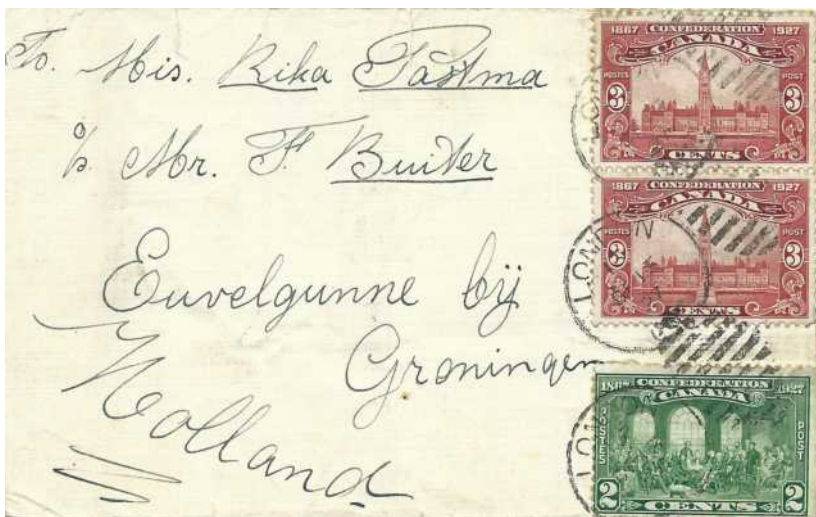 To. Mis. Rika Pastma
c/o Mr. F. Buiter
Euvelgunne bij
Groningen
Holland
1867 CONFEDERATION 1927
CANADA
POSTES POST
3 3
CENTS
1867 CONFEDERATION 1927
CANADA
POSTES POST
3 3
CENTS
LONDON
1867 CONFEDERATION 1927
CANADA
POSTES POST
2 2
CENTS